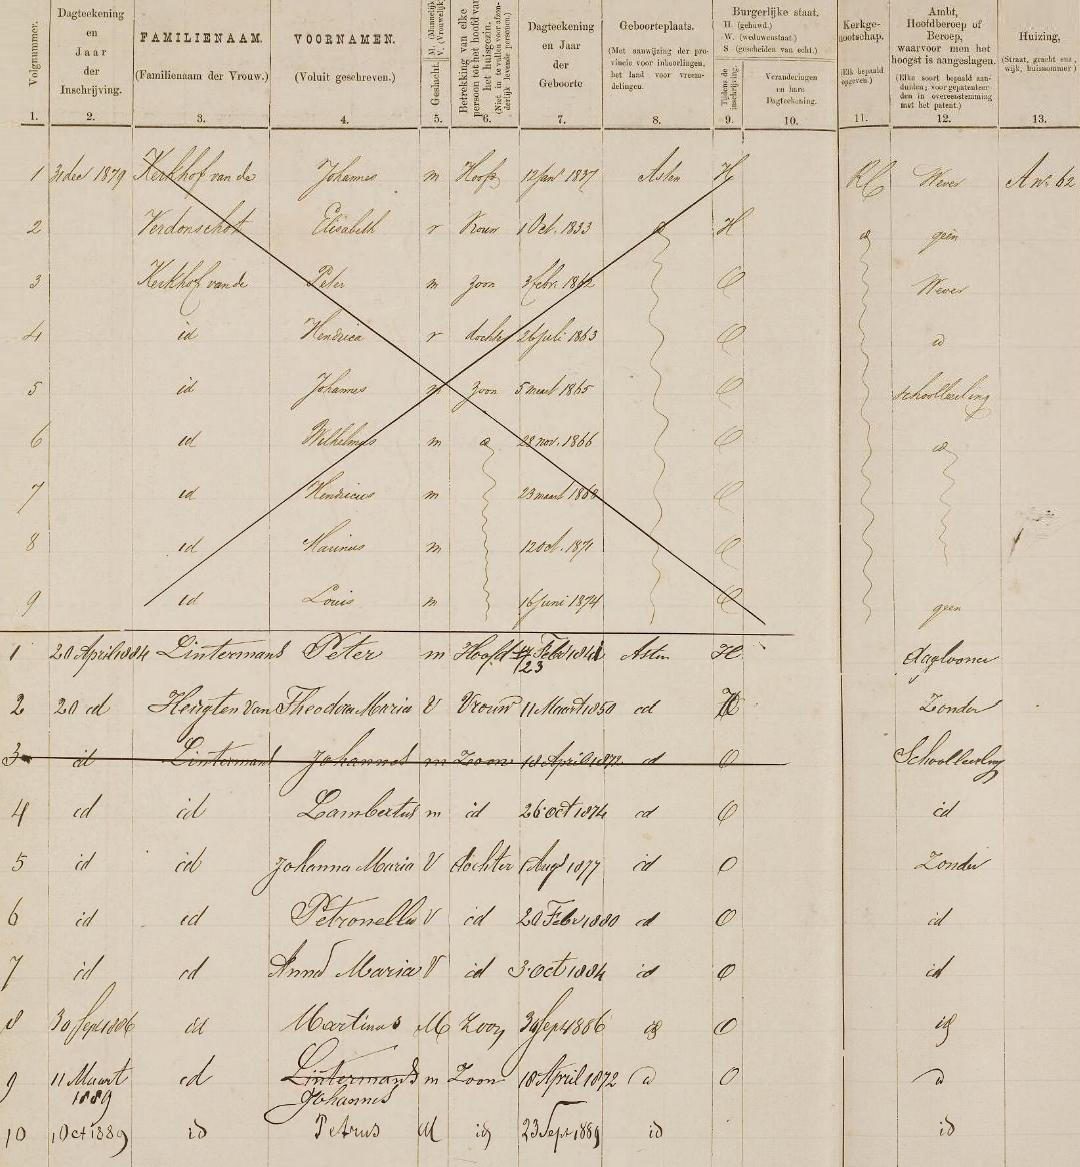 Volgnummer.
1.
Dagteekening
en
Jaar
der
Inschrijving.
2.
FAMILIENAAM.
(Familienaam der Vrouw.)
3.
VOORNAMEN.
(Voluit geschreven.)
4.
Geslacht. M. (Mannelijk) V. (Vrouwelijk)
5.
Betrekking van elke
persoon tot het hoofd van
het huisgezin.
(Niet in te vullen voor afzon-
derlijk levende personen.)
6.
Dagteekening
en Jaar
der
Geboorte
7.
Geboorteplaats.
(Met aanwijzing der pro-
vincie voor inboorlingen,
het land voor vreem-
delingen.
8.
Burgerlijke staat.
H. (gehuwd.)
W. (weduwenstaat.)
S (gescheiden van echt.)
Tijdens de
inschrijving.
9.
Veranderingen
en hare
Dagteekening.
10.
Kerkge-
nootschap.
(Elk bepaald
opgeven.)
11.
Ambt,
Hoofdberoep of
Beroep,
waarvoor men het
hoogst is aangeslagen.
(Elke soort bepaald aan-
duiden; voor gepatenteer-
den in overeenstemming
met het patent.)
12.
Huizing,
(Straat, gracht enz.,
wijk, huisnummer.)
13.
1 31 dec 1879 Kerkhof van de Johannes m Hoofd 12 jan 1837 Asten H RC Wever A no. 62
2 Verdonschot Elisabeth v Vrouw 1 Oct. 1833 id H id geen
3 Kerkhof van de Peter m zoon 3 febr. 1862 O Wever
4 id Hendrica v dochter 26 juli 1863 O id
5 id Johannes m zoon 5 maart 1865 O schoolleerling
6 id Wilhelmus m id 28 nov. 1866 O id
7 id Hendricus m 23 maart 1868 O
8 id Marinus m 12 oct. 1871 O
9 id Louis m 16 juni 1874 O geen
1 20 April 1884 Lintermans Peter m Hoofd Febr 1841 Asten H Daglooner
23
2 20 id Heugten Van Theodora Maria V Vrouw 11 Maart 1850 id H Zonder
3 id Lintermans Johannes m Zoon 18 April 1872 id O Schoolleerling
4 id id Lambertus m id 26 oct 1874 id O id
5 id id Johanna Maria V dochter 1 Aug 1877 id O Zonder
6 id id Petronella V id 20 Febr 1880 id O id
7 id id Anna Maria V id 3 oct 1884 id O id
8 30 Sept 1886 id Martinus M Zoon 30 Sept 1886 id O id
9 11 Maart 1889 id Lintermans Johannes m Zoon 18 April 1872 id O id
10 1 Oct 1889 id Petrus M id 23 Sept 1889 id id